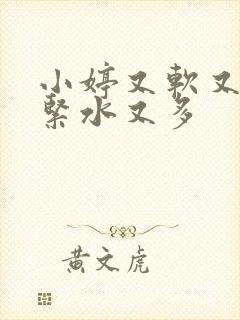 小婷又軟又
緊水又多
黃文虎